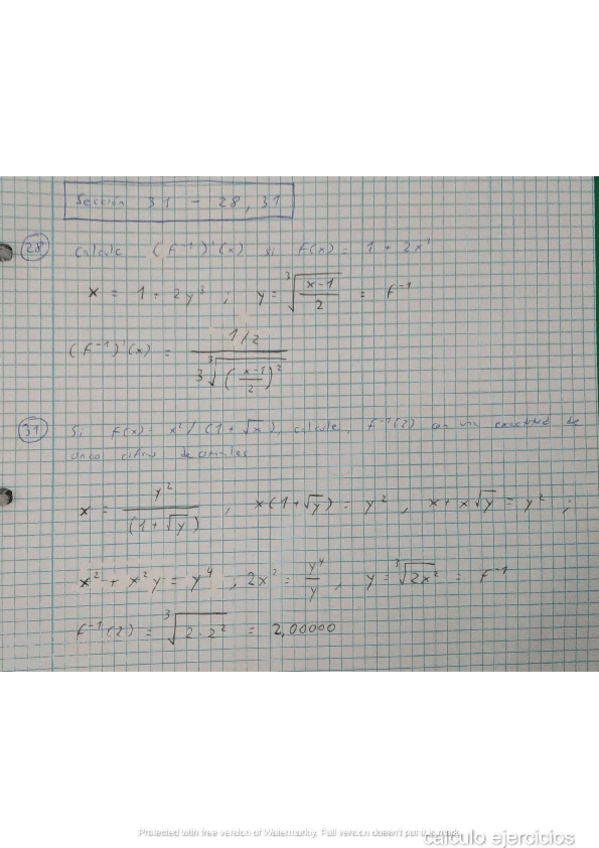 Sección 31 - 28, 31
28 Calcule (f⁻¹)'(x) si f(x) = 1 + 2x³
x = 1 + 2y³ ; y = ∛((x-1)/2) = f⁻¹
(f⁻¹)'(x) = (1/2) / (3∛((x-1)/2)²)
31 Si f(x) = x² / (1 + √x), calcule, f⁻¹(2) con una exactitud de
cinco cifras decimales
x = y² / (1 + √y) , x(1 + √y) = y² , x + x√y = y² ;
x² + x²y = y⁴ , 2x² = y⁴/y , y = ∛(2x²) = f⁻¹
f⁻¹(2) = ∛(2·2²) = 2,00000
Protected with free version of Watermarkly. Full version doesn't put this mark.
calculo ejercicios